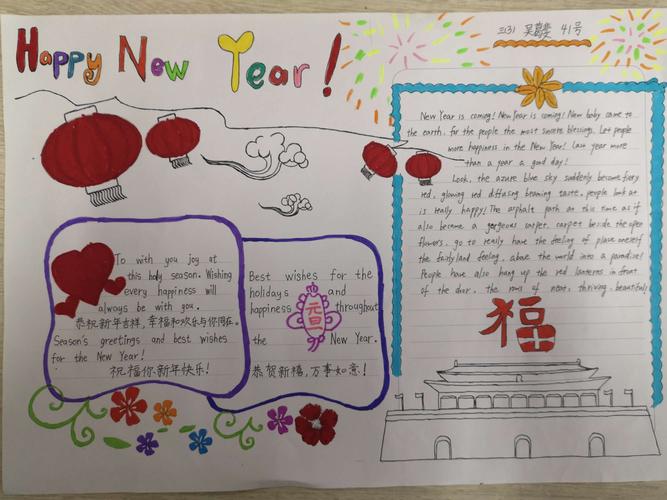 Happy New Year!
三31 吴 41号
New Year is coming! New Year is coming! New baby came to
the earth, for the people the most sincere blessings. Let people
more happiness in the New Year! Last year more
than a year a good day!
Look, the azure blue sky suddenly become fiery
red, glowing red diffusing beaming taste, people look at
is really happy! The asphalt path at this time as if
also become a gorgeous carpet, carpet beside the open
flowers, go to really have the feeling of place oneself
the fairyland feeling, above the world into a paradise!
People have also hang up the red lanterns in front
of the door, the rows of neat, thriving, beautiful!
福
To with you joy at
this holy season. Wishing
every happiness will
always be with you.
恭祝新年吉祥,幸福和欢乐与你同在。
Season's greetings and best wishes
for the New Year!
祝福你新年快乐!
Best wishes for the
holidays and
happiness throughout
the New Year.
恭贺新禧,万事如意!
元旦